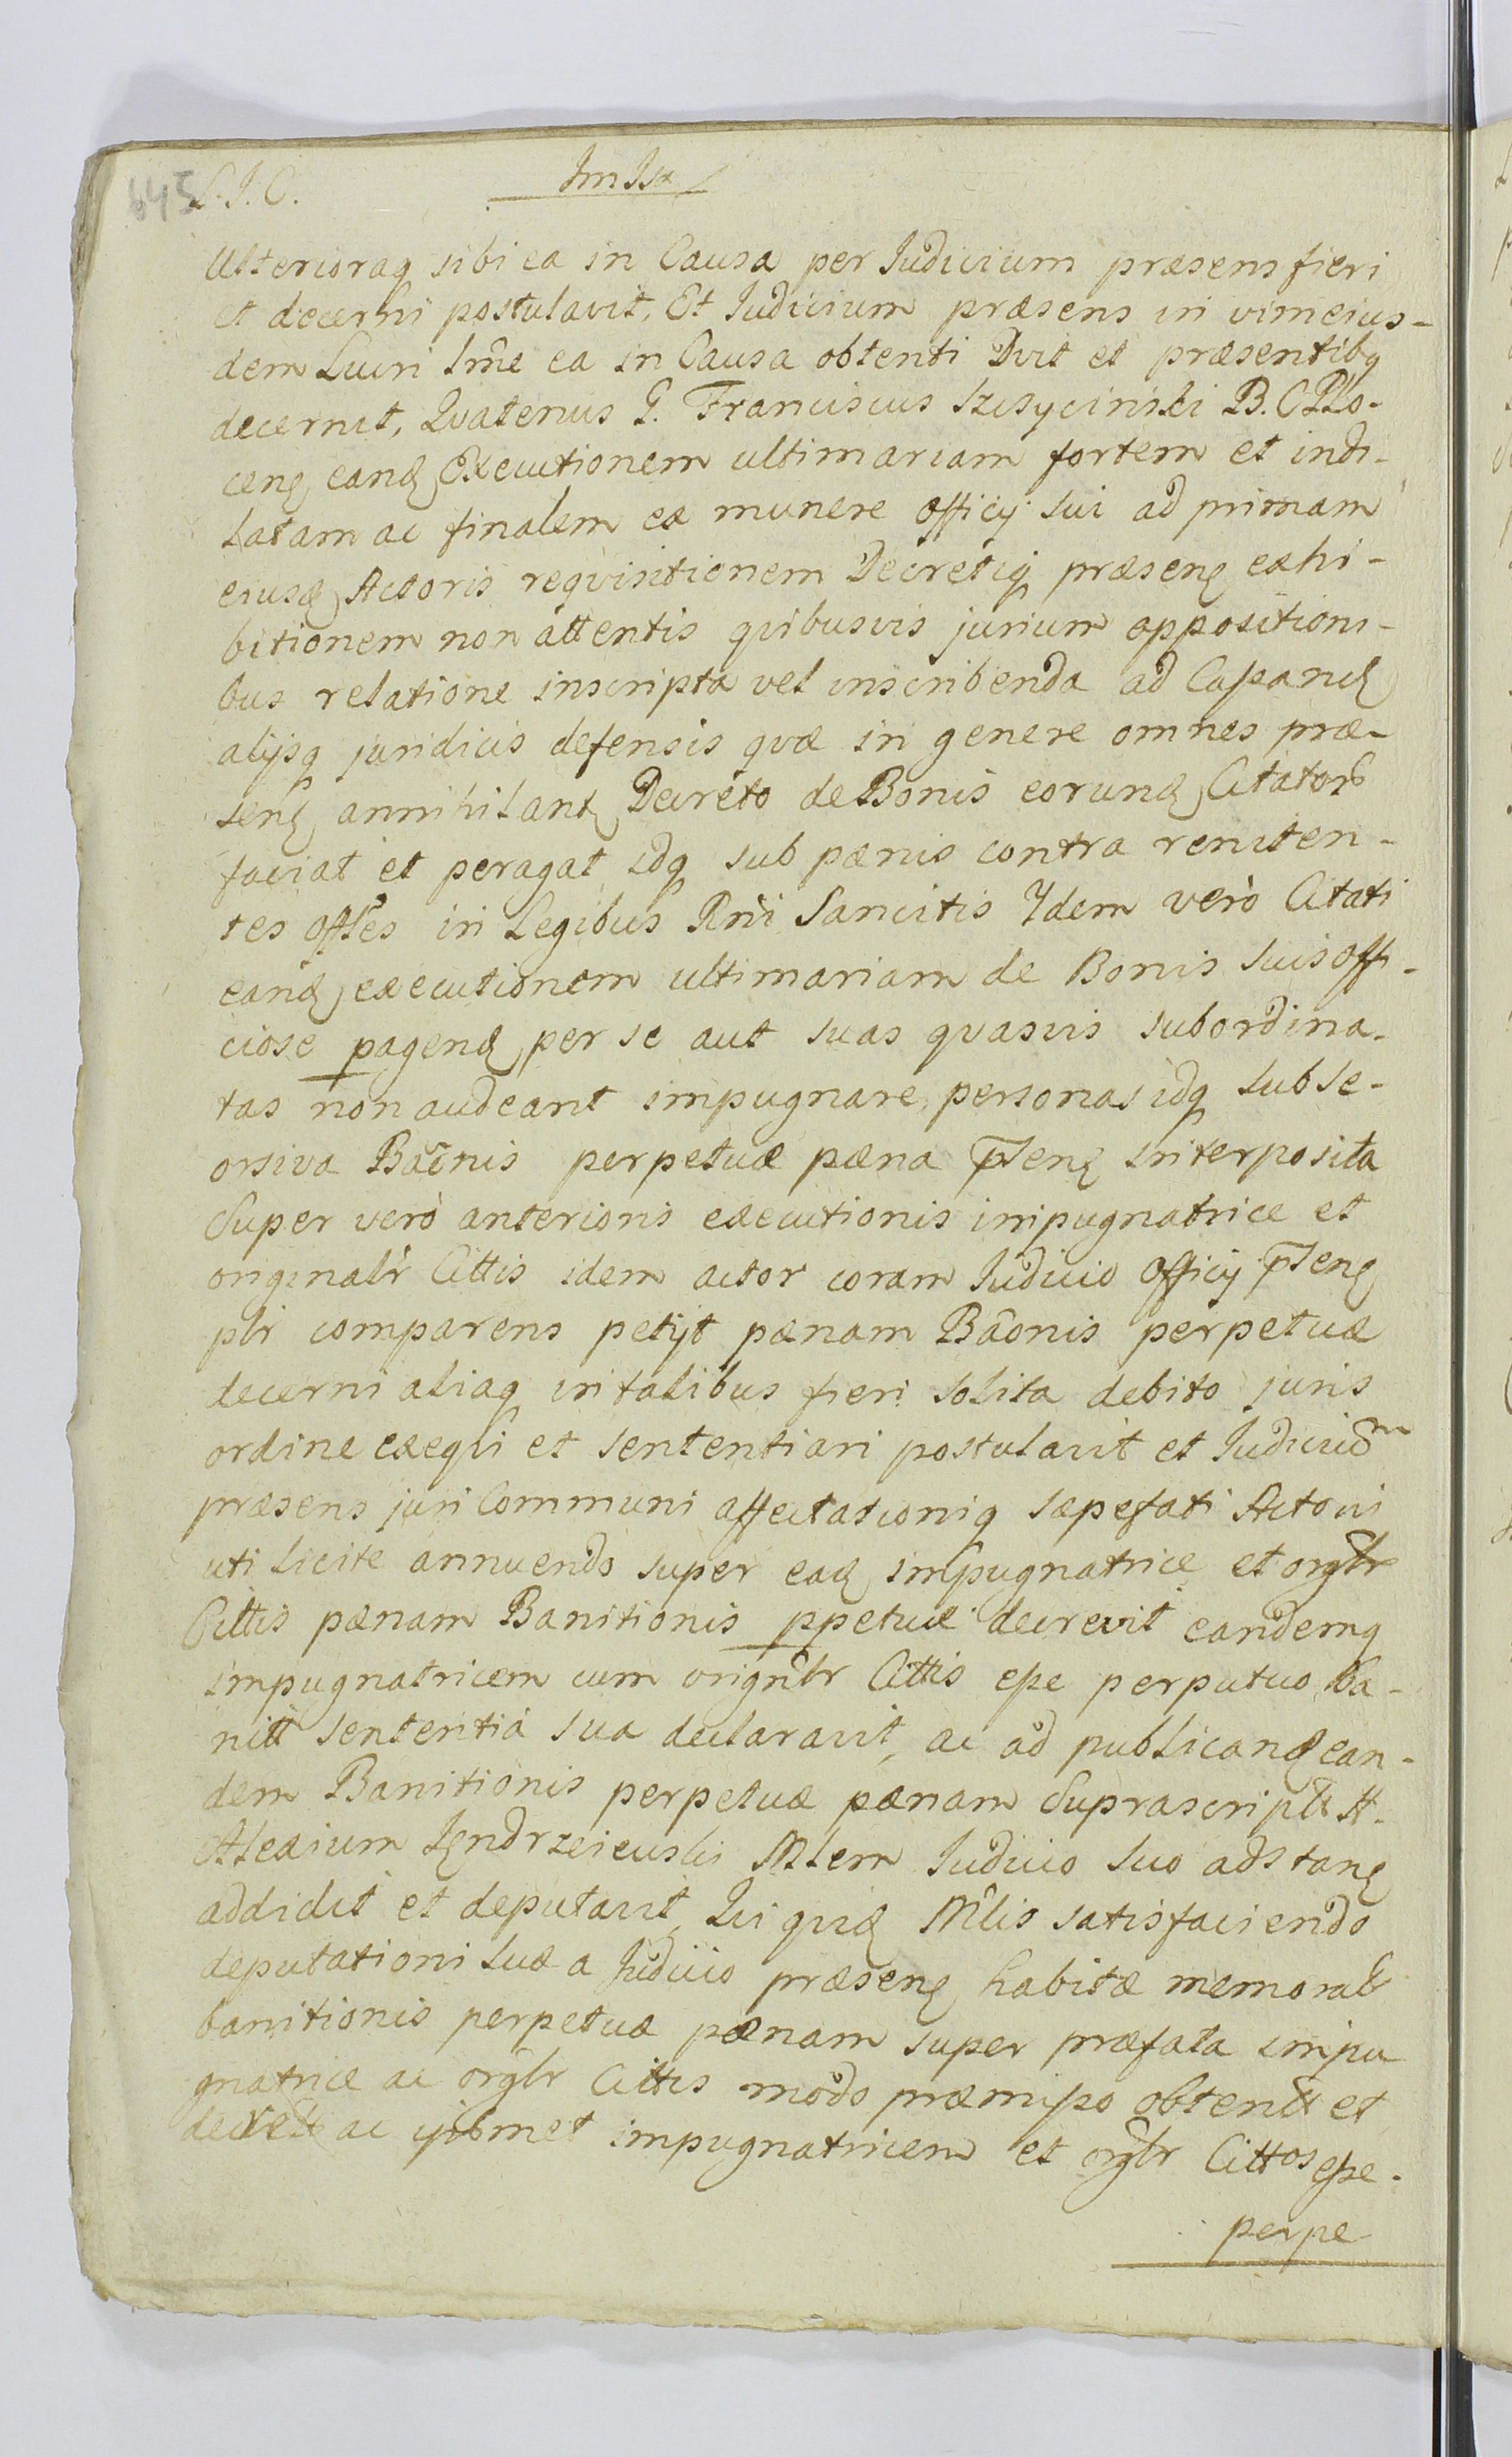 645 L.I.C. Im Isx
Ulterioraq sibi ea in Causa per Iudicium præsens fieri
et decerni postulavit, Et Iudicium præsens in vim eius-
dem Lucri Ime ea in Causa obtenti Dvit et præsentibq
decernit, Quatenus G. Franciscus Szisyciński B. C Plo-
ceng eanq Executionem ultimariam fortem et indi-
latam ac finalem ex munere officij sui ad primam
eiusq Actoris reqvisitionem Decretiq præseng exhi-
bitionem non attentis qvibusvis jurium oppositioni-
bus relatione inscripta vel inscribenda ad Capanq
alijsq juridicis defensis qvæ in genere omnes præ-
senq annihilanq Decreto de Bonis eorunq Citator
faciat et peragat idq sub pænis contra reniten-
tes offles in Legibus Rni Sancitis Idem verò Citati
eanq executionem ultimariam de Bonis suis offi-
ciose pagenq per se aut suas qvasvis subordina-
tas non audeant impugnare personas idq sub se-
orsiva Bãonis perpetuæ pæna pseng interposita
Super verò anterioris executionis impugnatrice et
originalr Cittis idem actor coram Iudicio officij pseng
plr comparens petijt pænam Bãonis perpetuæ
decerni aliaq in talibus fieri solita debito juris
ordine exeqvi et sententiari postulavit et Iudiciũm
præsens juri Communi affectationiq sæpefati Actori
uti licite annuendo super eaq impugnatrice et orglr
Cittis pænam Banitionis ppetuæ decrevit eandemq
impugnatricem cum orignlr Cittis epe perpetuo ba-
nitt sententiâ sua declaravit, ac ad publicanq ean-
dem Banitionis perpetuæ pænam Suprascriptt H.
Alexium Jendrzeiewski Mlem Iudicio suo adstanq
addidit et deputavit, Qui qviq Mlis satisfaciendo
deputationi suæ a Judicio præseng habitæ memorab
banitionis perpetuæ pænam super præfata impu
gnatrice ac orglr Cittis modo præmipo obtentt et
decrett ac ijsmet impugnatricem et orglr Cittos epe.
perpe